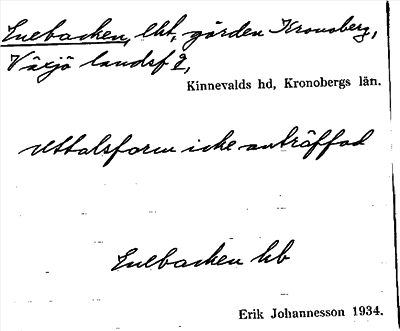 Enebacken, lht, gården Kronoberg,
Växjö landsf 2,
Kinnevalds hd, Kronobergs län.
Uttalsform icke anträffad
Enebacken hb
Erik Johannesson 1934.